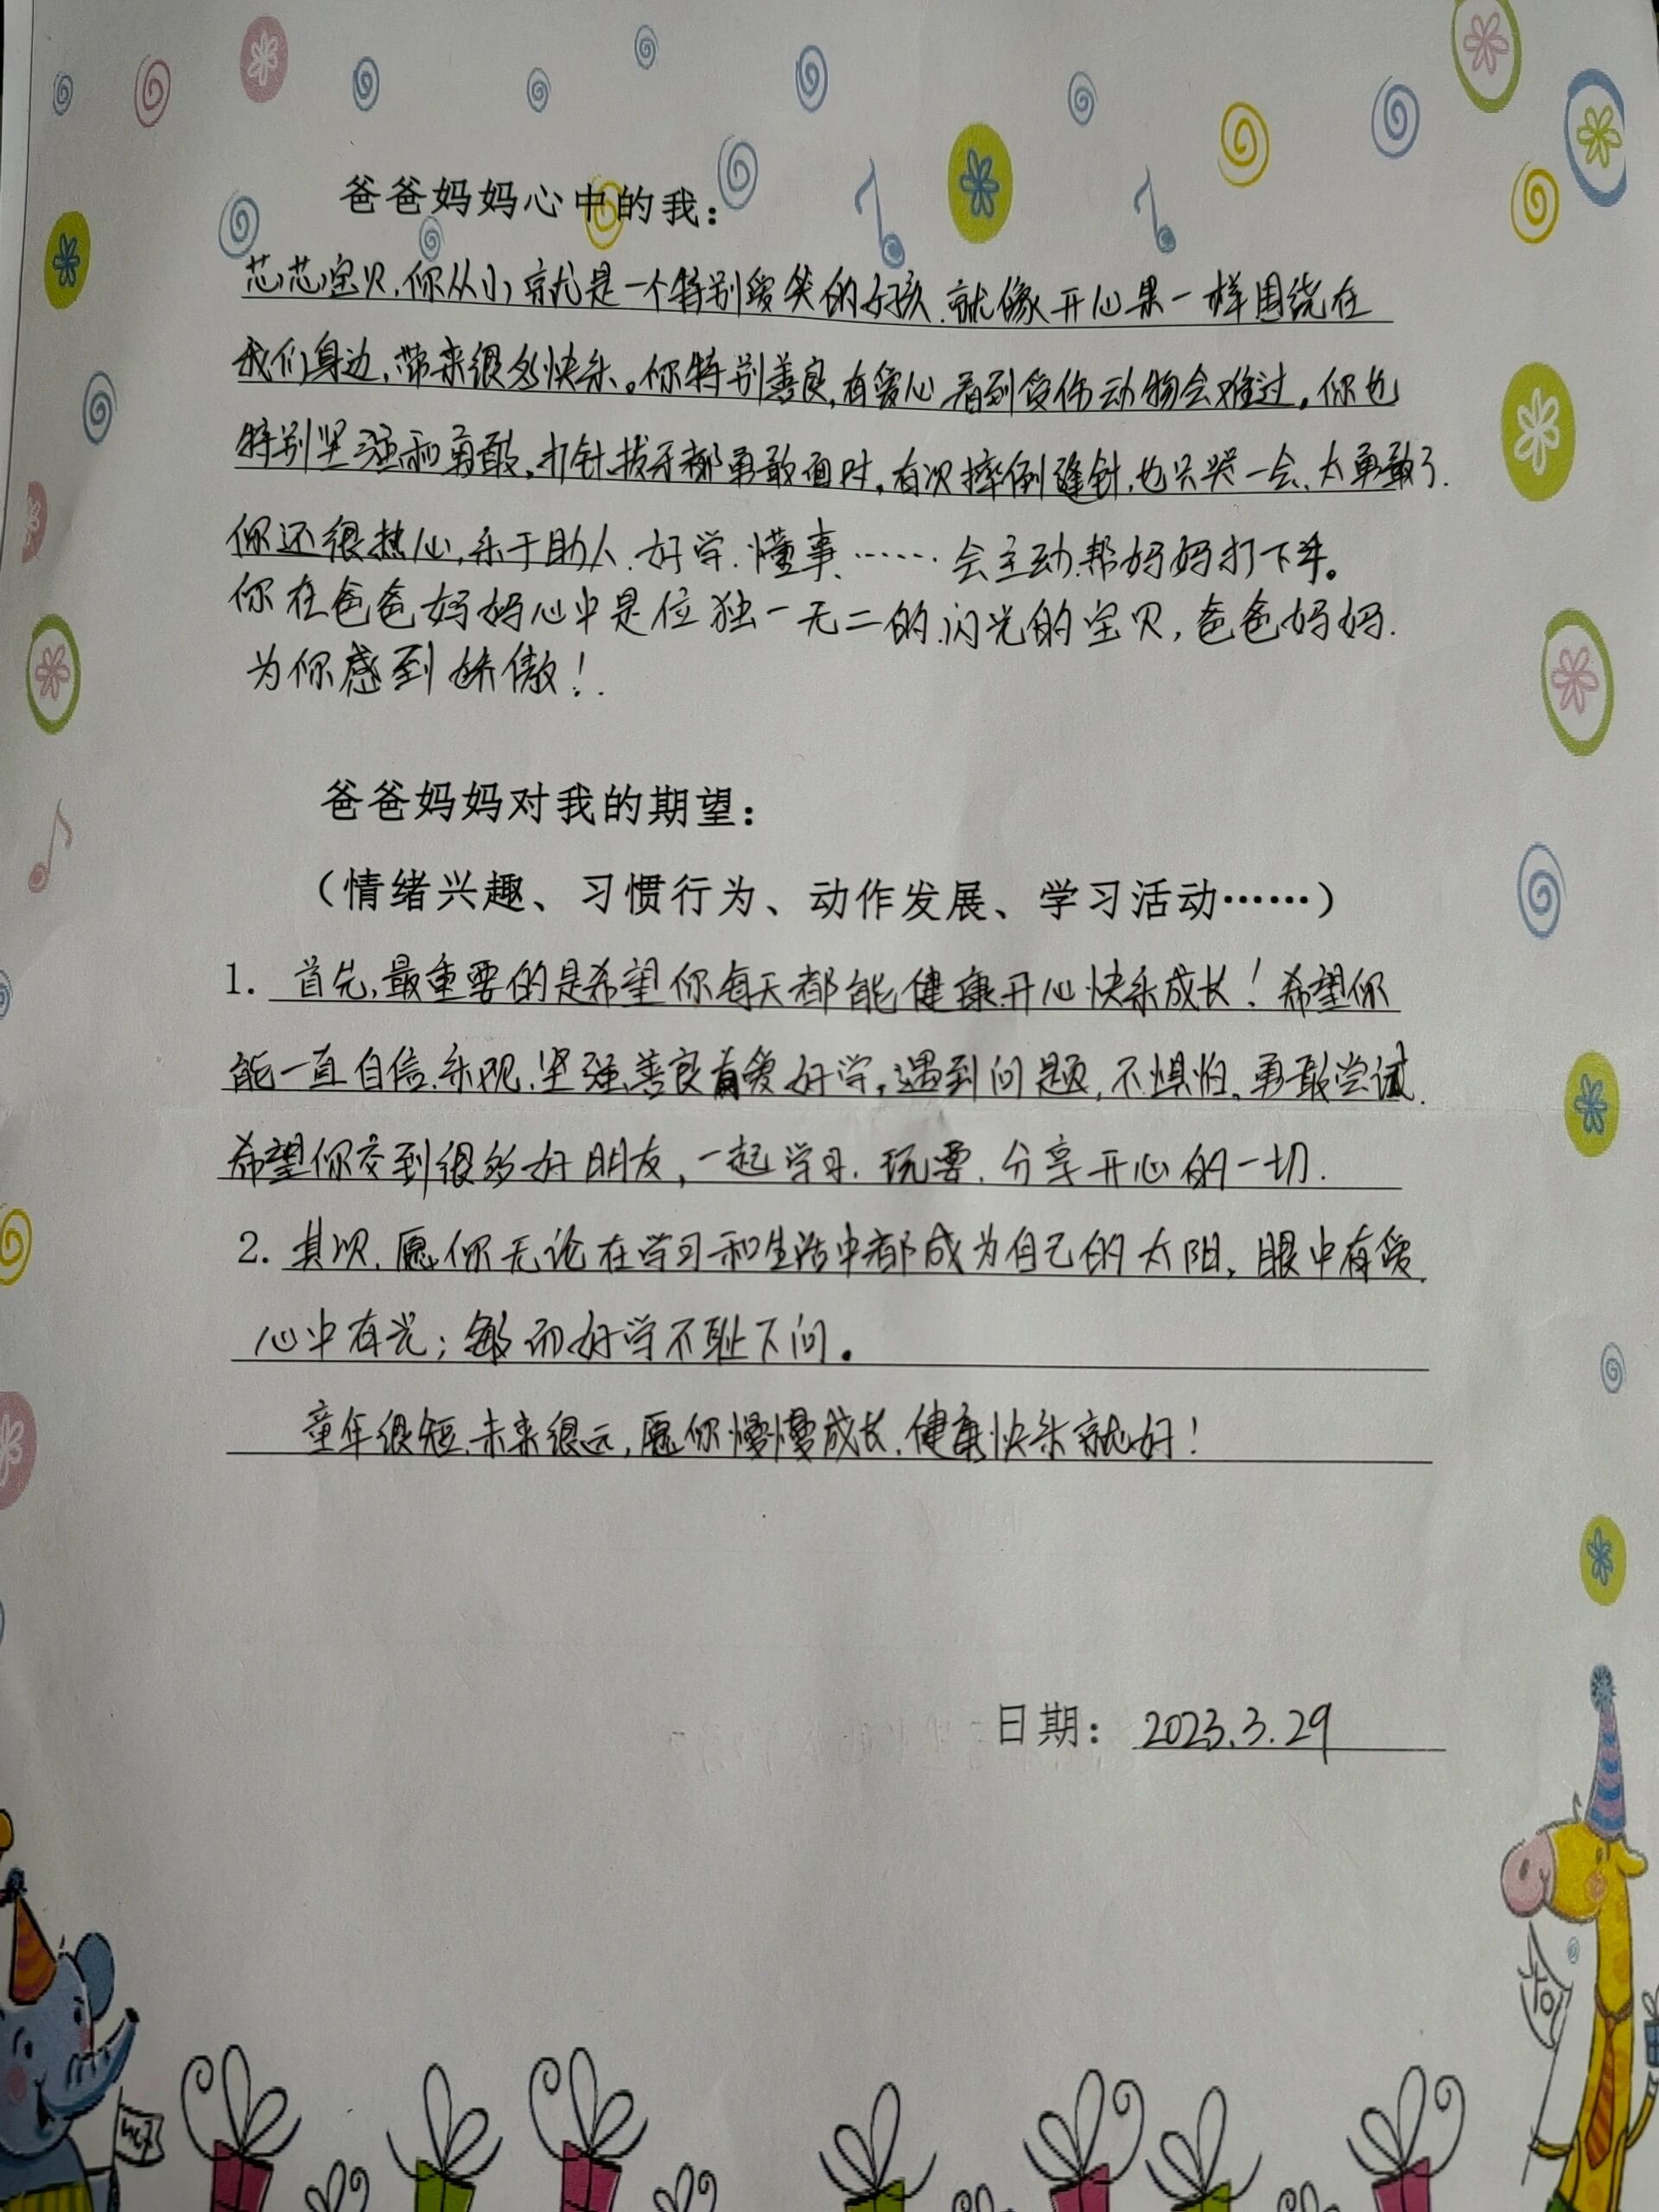 爸爸妈妈心中的我：
芯芯宝贝,你从小就是一个特别爱笑的女孩.就像开心果一样围绕在
我们身边,带来很多快乐。你特别善良,有爱心 看到受伤动物会难过。你也
特别坚强和勇敢,打针、拔牙都勇敢面对,有次摔倒缝针,也只哭一会、太勇敢了.
你还很热心,乐于助人.好学.懂事、……会主动帮妈妈打下手。
你在爸爸妈妈心中是位独一无二的.闪光的宝贝,爸爸妈妈.
为你感到娇傲！.
爸爸妈妈对我的期望：
（情绪兴趣、习惯行为、动作发展、学习活动……）
1. 首先,最重要的是希望你每天都能健康开心快乐成长！希望你
能一直自信.乐观.坚强善良有爱好学。遇到问题,不惧怕,勇敢尝试.
希望你交到很多好朋友,一起学习.玩耍.分享开心的一切.
2. 其次.愿你无论在学习和生活中都成为自己的太阳,眼中有爱.
心中有光；敏而好学不耻下问。
童年很短.未来很远,愿你慢慢成长.健康快乐就好！
日期：2023.3.29